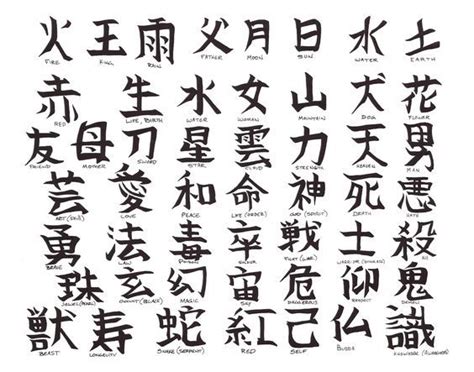 火 王 雨 父 月 日 水 土
FIRE KING RAIN FATHER MOON SUN WATER EARTH
赤 生 水 女 山 犬 花
RED LIFE, BIRTH WATER WOMAN MOUNTAIN DOG FLOWER
友 母 刀 星 雲 力 天 男
FRIEND MOTHER SWORD STAR CLOUD STRENGTH HEAVEN MAN
芸 愛 和 命 神 死 悪
ART (SKILL) LOVE PEACE LIFE (ORDER) GOD (SPIRIT) DEATH HATE
勇 法 毒 卒 戦 士 殺
BRAVE LAW POISON SOLDIER FIGHT (WAR) WARRIOR KILL
珠 玄 幻 宙 危 仰 鬼
JEWEL (PEARL) (BLACK) MAGIC SKY DANGEROUS RESPECT DEMON
獣 寿 蛇 紅 己 仏 識
BEAST LONGEVITY SNAKE (SERPENT) RED SELF BUDDHA KNOWLEDGE